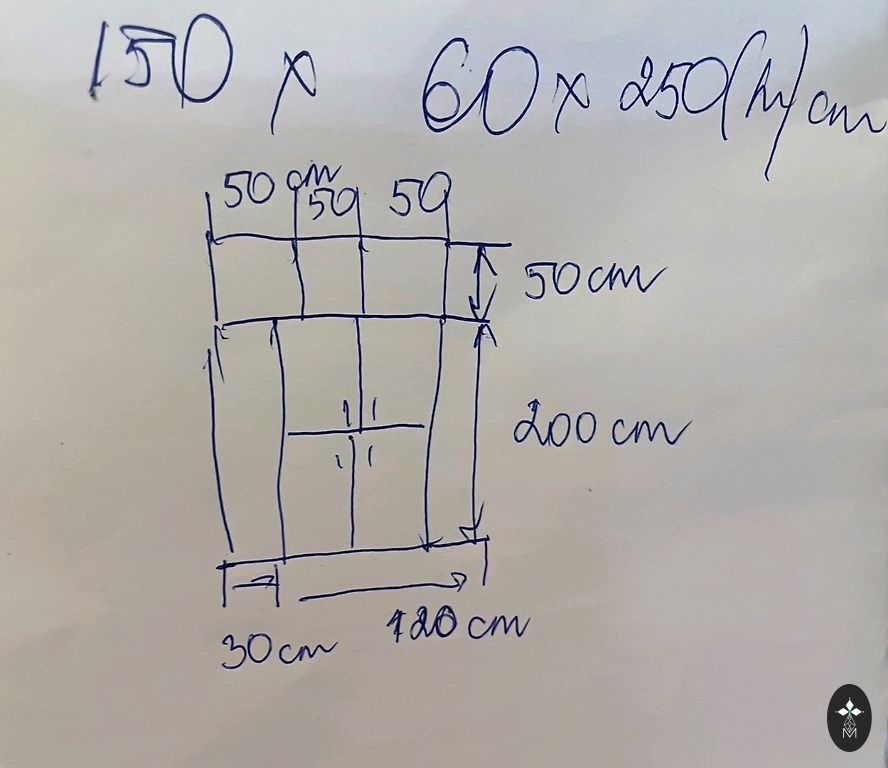 150 x 60 x 250(h) cm
50 cm 50 50
50 cm
200 cm
30 cm 120 cm
M